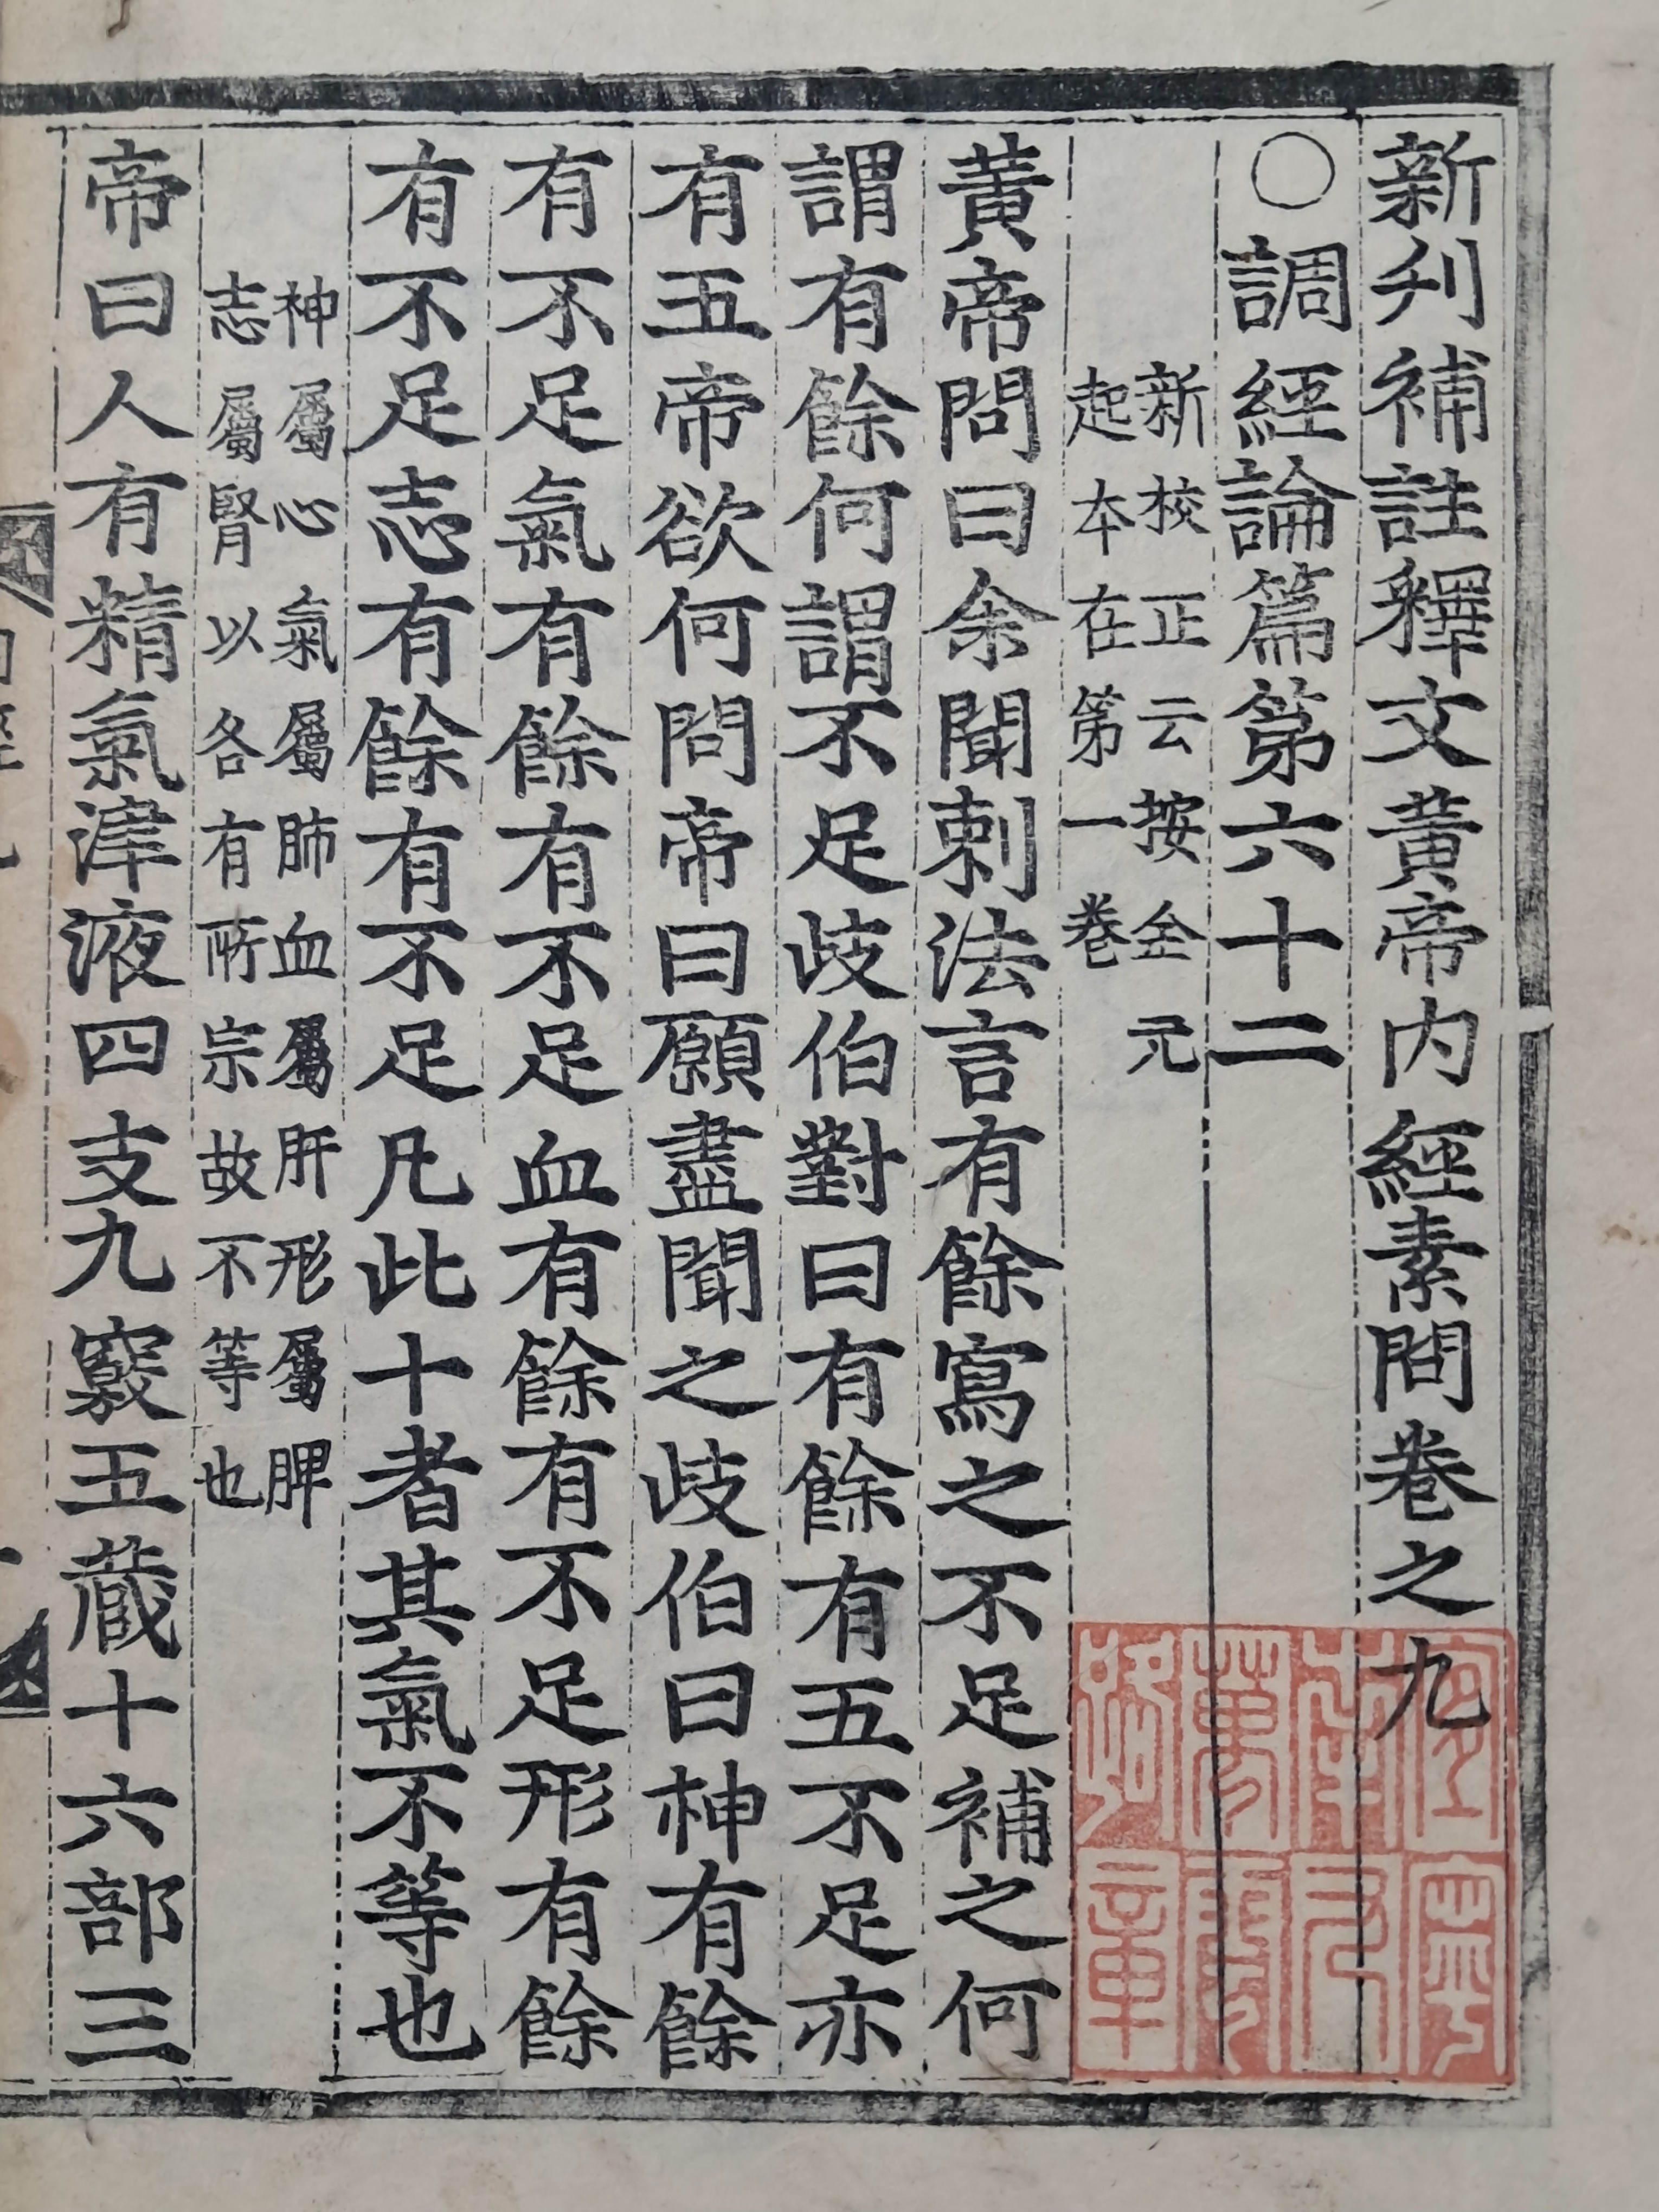 新刋補註釋文黃帝内經素問卷之九
〇調經論篇第六十二
新校正云按全元
起本在第一卷
黃帝問曰余聞刺法言有餘寫之不足補之何
謂有餘何謂不足歧伯對曰有餘有五不足亦
有五帝欲何問帝曰願盡聞之歧伯曰神有餘
有不足氣有餘有不足血有餘有不足形有餘
有不足志有餘有不足凡此十者其氣不等也
神屬心氣屬肺血屬肝形屬脾
志屬腎以各有所宗故不等也
帝曰人有精氣津液四支九竅五藏十六部三